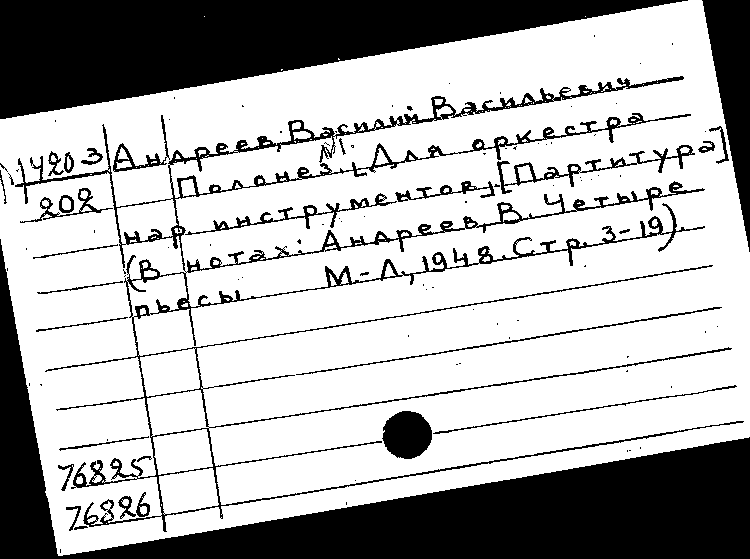 1420 3 Андреев, Василий Васильевич
202 Полонез. №1. [Для оркестра
нар. инструментов]. [Партитура]
(В нотах: Андреев, В. Четыре
пьесы. М.-Л., 1948. Стр. 3-19).
76825
76826